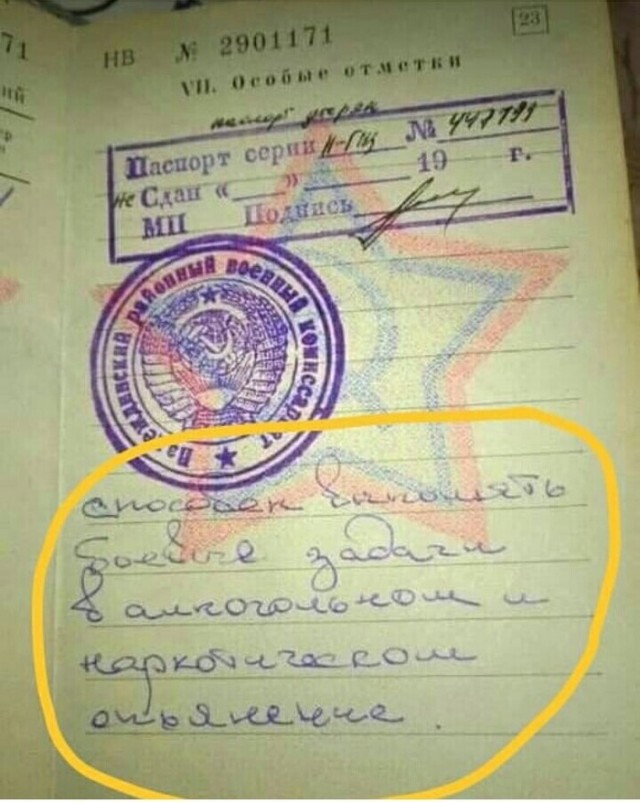 71
НВ № 2901171
23
VII. Особые отметки
паспорт утерян
Паспорт серии II-ГЩ № 447799
не Сдан « » 19 г.
МП Подпись
районный военный комиссариат
способен выполнять
боевые задачи
в алкогольном и
наркотическом
опьянение.